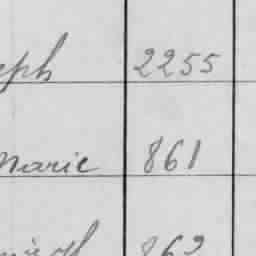 eph 2255
Marie 861
862